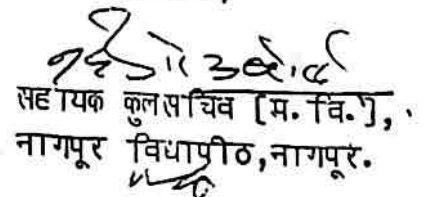 सहायक कुलसचिव [म. वि.],
नागपूर विद्यापीठ,नागपूर.